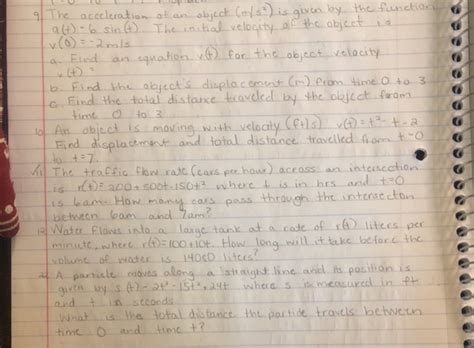 9. The acceleration of an object (m/s²) is given by the function
a(t) = 6 sin(t). The initial velocity of the object is
v(0) = -2 m/s
a. Find an equation v(t) for the object velocity
v(t) =
b. Find the object's displacement (m) from time 0 to 3
c. Find the total distance traveled by the object from
time 0 to 3
10. An object is moving with velocity (ft/s) v(t) = t² - t - 2
Find displacement and total distance travelled from t=0
to t=7
11. The traffic flow rate (cars per hour) across an intersection
is r(t) = 200 + 500t - 150t² where t is in hrs and t=0
is 6am. How many cars pass through the intersection
between 6am and 7am?
Water flows into a large tank at a rate of r(t) liters per
minute, where r(t) = 100 + 10t. How long will it take before the
volume of water is 1400 liters?
A particle moves along a straight line and its position is
given by s(t) = 2t³ - 15t² + 24t where s is measured in ft
and t in seconds
What is the total distance the particle travels between
time 0 and time t?